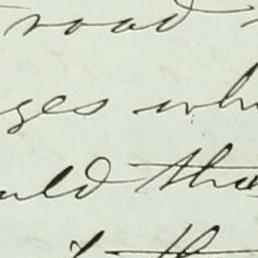 road
ges wh
uld tha
t th